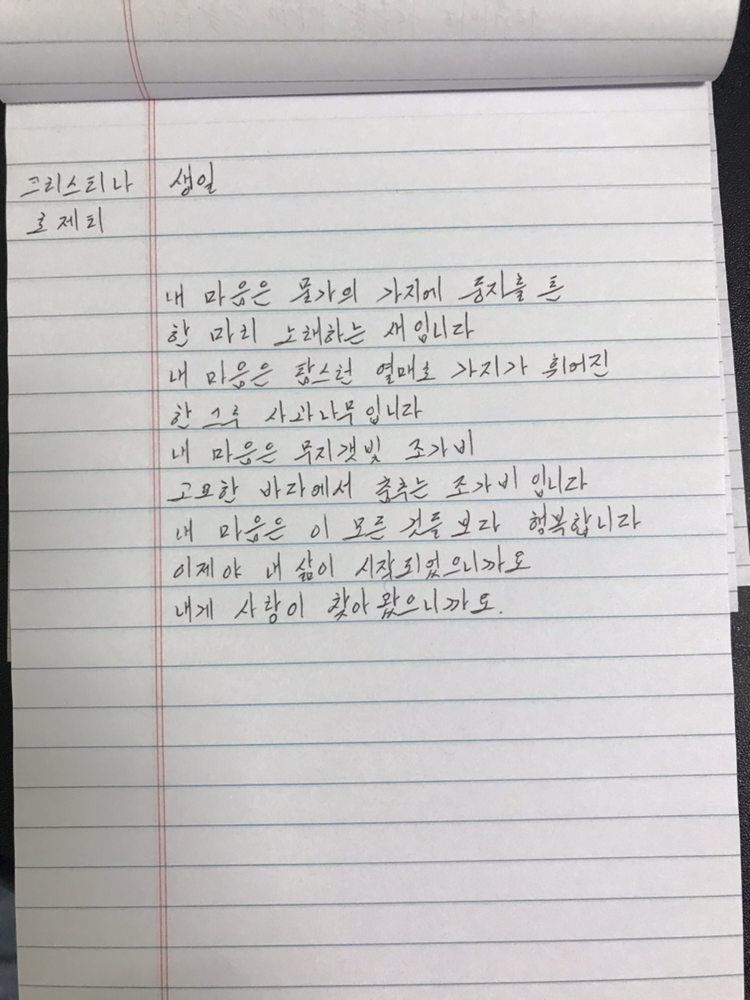 크리스티나 생일
로제티
내 마음은 물가의 가지에 둥지를 튼
한 마리 노래하는 새입니다
내 마음은 탐스런 열매로 가지가 휘어진
한 그루 사과나무입니다
내 마음은 무지갯빛 조가비
고요한 바다에서 춤추는 조가비입니다
내 마음은 이 모든 것들보다 행복합니다
이제야 내 삶이 시작되었으니까요
내게 사랑이 찾아왔으니까요.